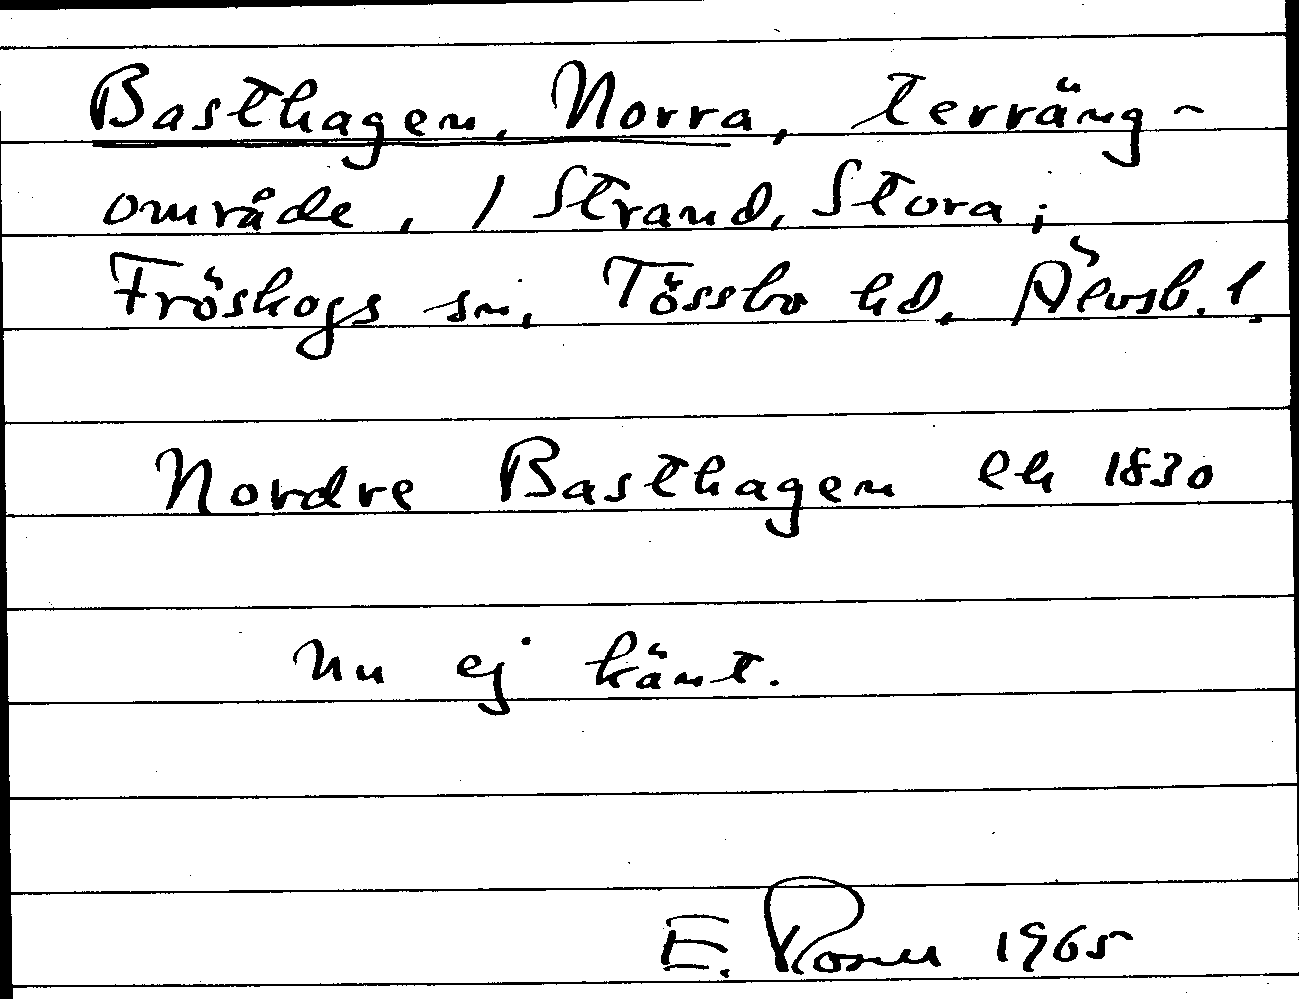 Basthagen, Norra, terräng-
område, / Strand, Stora;
Fröskogs sn, Tössbo hd, Älvsb. l.
Nordre Basthagen ek 1830
Nu ej känt.
E. Rosner 1965